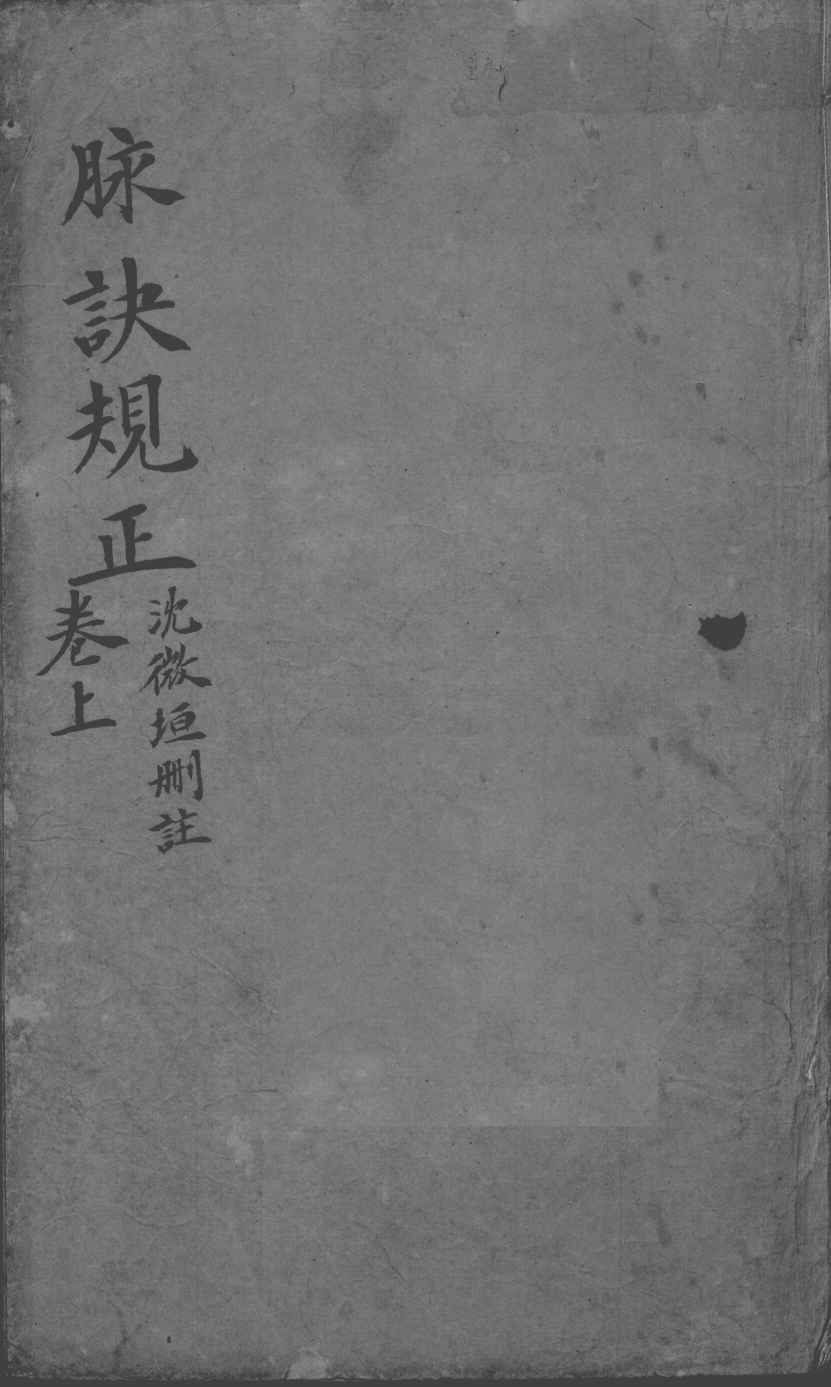 脉訣規正
沈微垣刪註
卷上